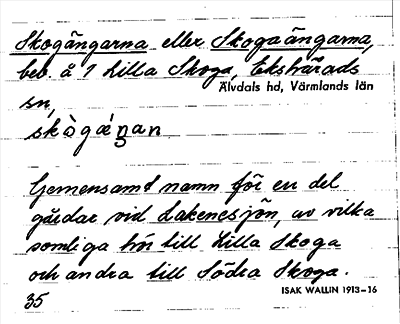 Skogängarna eller Skogaängarna,
beb. å 1 Lilla Skoga, Ekshärads
Älvdals hd, Värmlands län
sn,
skògǽŋan
Gemensamt namn för en del
gårdar vid Lakenesjön, av vilka
somliga hör till Lilla Skoga
och andra till Södra Skoga.
35
ISAK WALLIN 1913–16